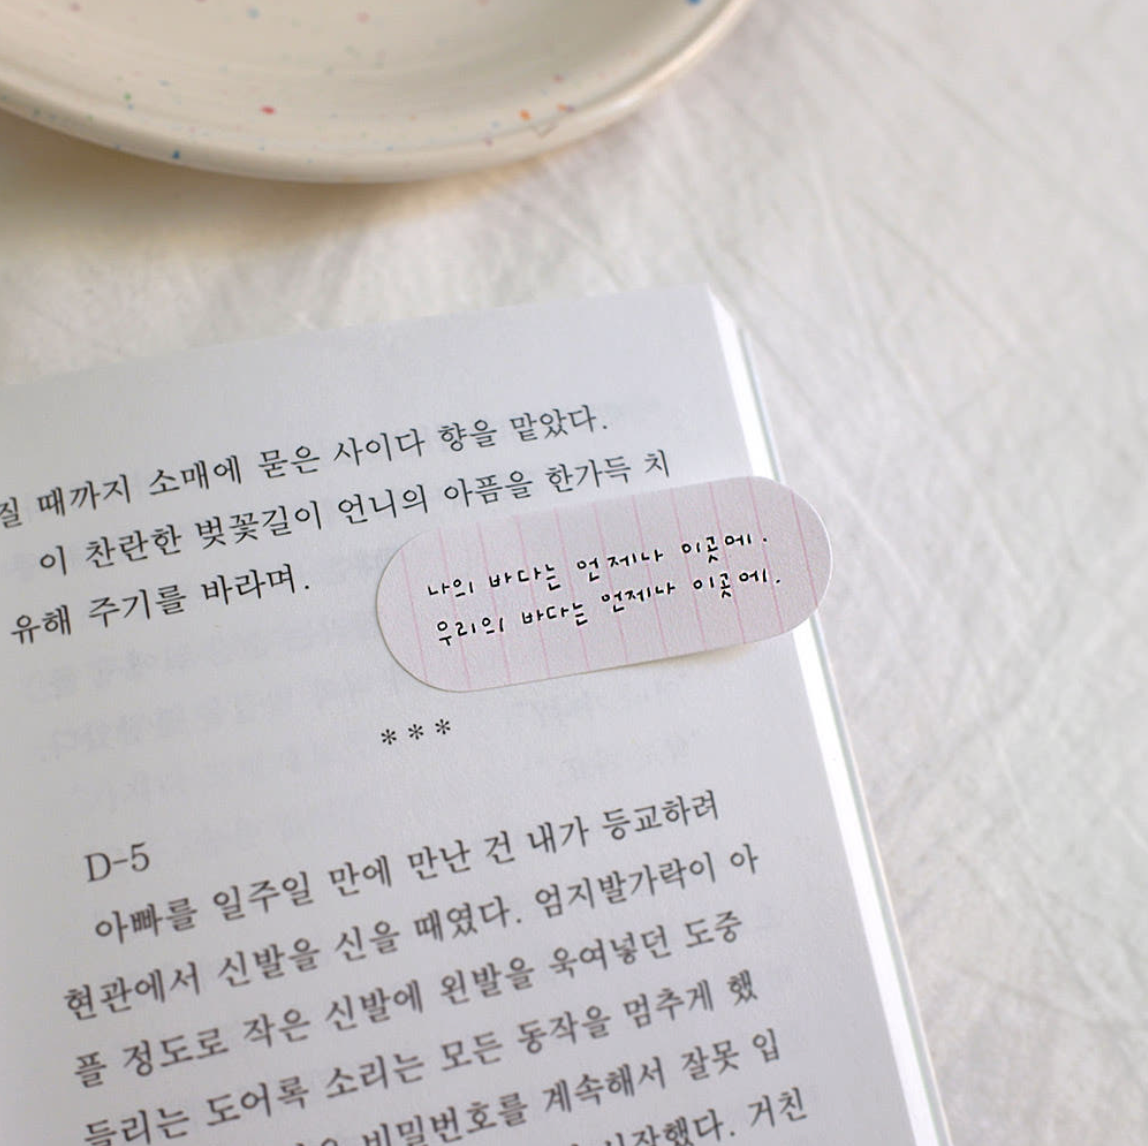 질 때까지 소매에 묻은 사이다 향을 맡았다.
이 찬란한 벚꽃길이 언니의 아픔을 한가득 치
유해 주기를 바라며.
나의 바다는 언제나 이곳에.
우리의 바다는 언제나 이곳에.
***
D-5
아빠를 일주일 만에 만난 건 내가 등교하려
현관에서 신발을 신을 때였다. 엄지발가락이 아
플 정도로 작은 신발에 왼발을 욱여넣던 도중
들리는 도어록 소리는 모든 동작을 멈추게 했
비밀번호를 계속해서 잘못 입
시작했다. 거친